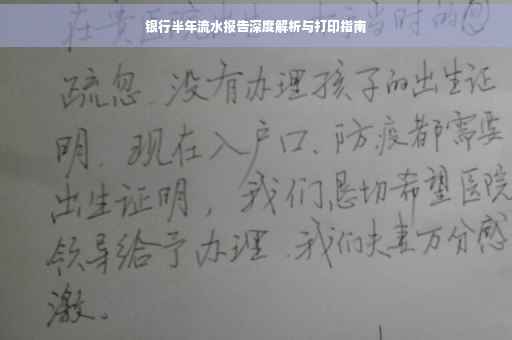 银行半年流水报告深度解析与打印指南
在贵医院 当时的
疏忽、没有办理孩子的出生证
明、现在入户口、防疫都需要
出生证明，我们恳切希望医院
领导给予办理、我们夫妻万分感
激。